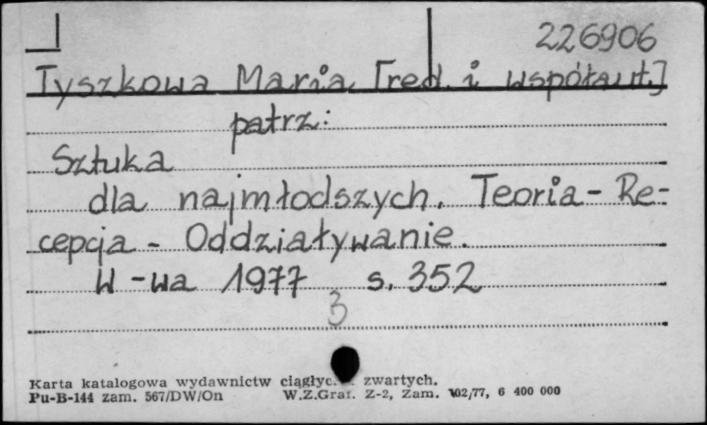 226906
Tyszkowa Maria [red. i współaut.]
patrz:
Sztuka
dla najmłodszych. Teoria - Re-
cepcja - Oddziaływanie.
W-wa 1977 s. 352
3
Karta katalogowa wydawnictw zwartych.
Pu-B-144 zam. 567/DW/On W.Z.Graf. Z-2, Zam. 102/77, 6 400 000